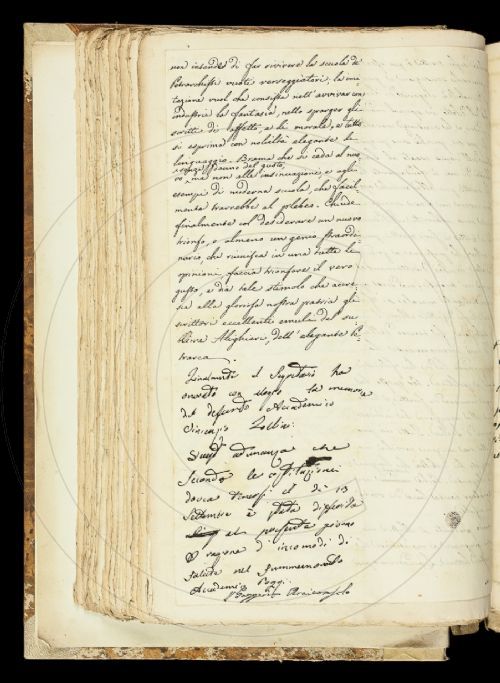 non intende di far rivivere la scuola de
Petrarchisti vuoti verseggiatori; la imi
tazione vuol che consista nell'avvivar con
industria la fantasia, nello spargere gli
scritti di affetti, e la morale, e tutto
si esprima con nobiltà elegante di
linguaggio. Brama che si ceda al nuo
senza danno del gusto
vo, ma non alla insinuazione, e agli
esempi di moderna scuola, che facil
mente trarrebbe al plebeo. Chiude
finalmente col desiderare un nuovo
trionfo, o almeno un genio straordi
nario, che riunisca in una tutte le
opinioni, faccia trionfare il vero
gusto, e dia tale stimolo che accre
sca alla gloriosa nostra patria gli
scrittori eccellenti emula del su
blime Alighieri, dell'elegante Pe
trarca.
Finalmente il Segretario ha
onorato con elogio la memoria
del defunto Accademico
adunanza che
secondo le costituzioni
dovea tenersi il dì 13
Settembre è stata differita
al presente giorno
ragione d'incomodi di
salute nel
Accademico Poggi.